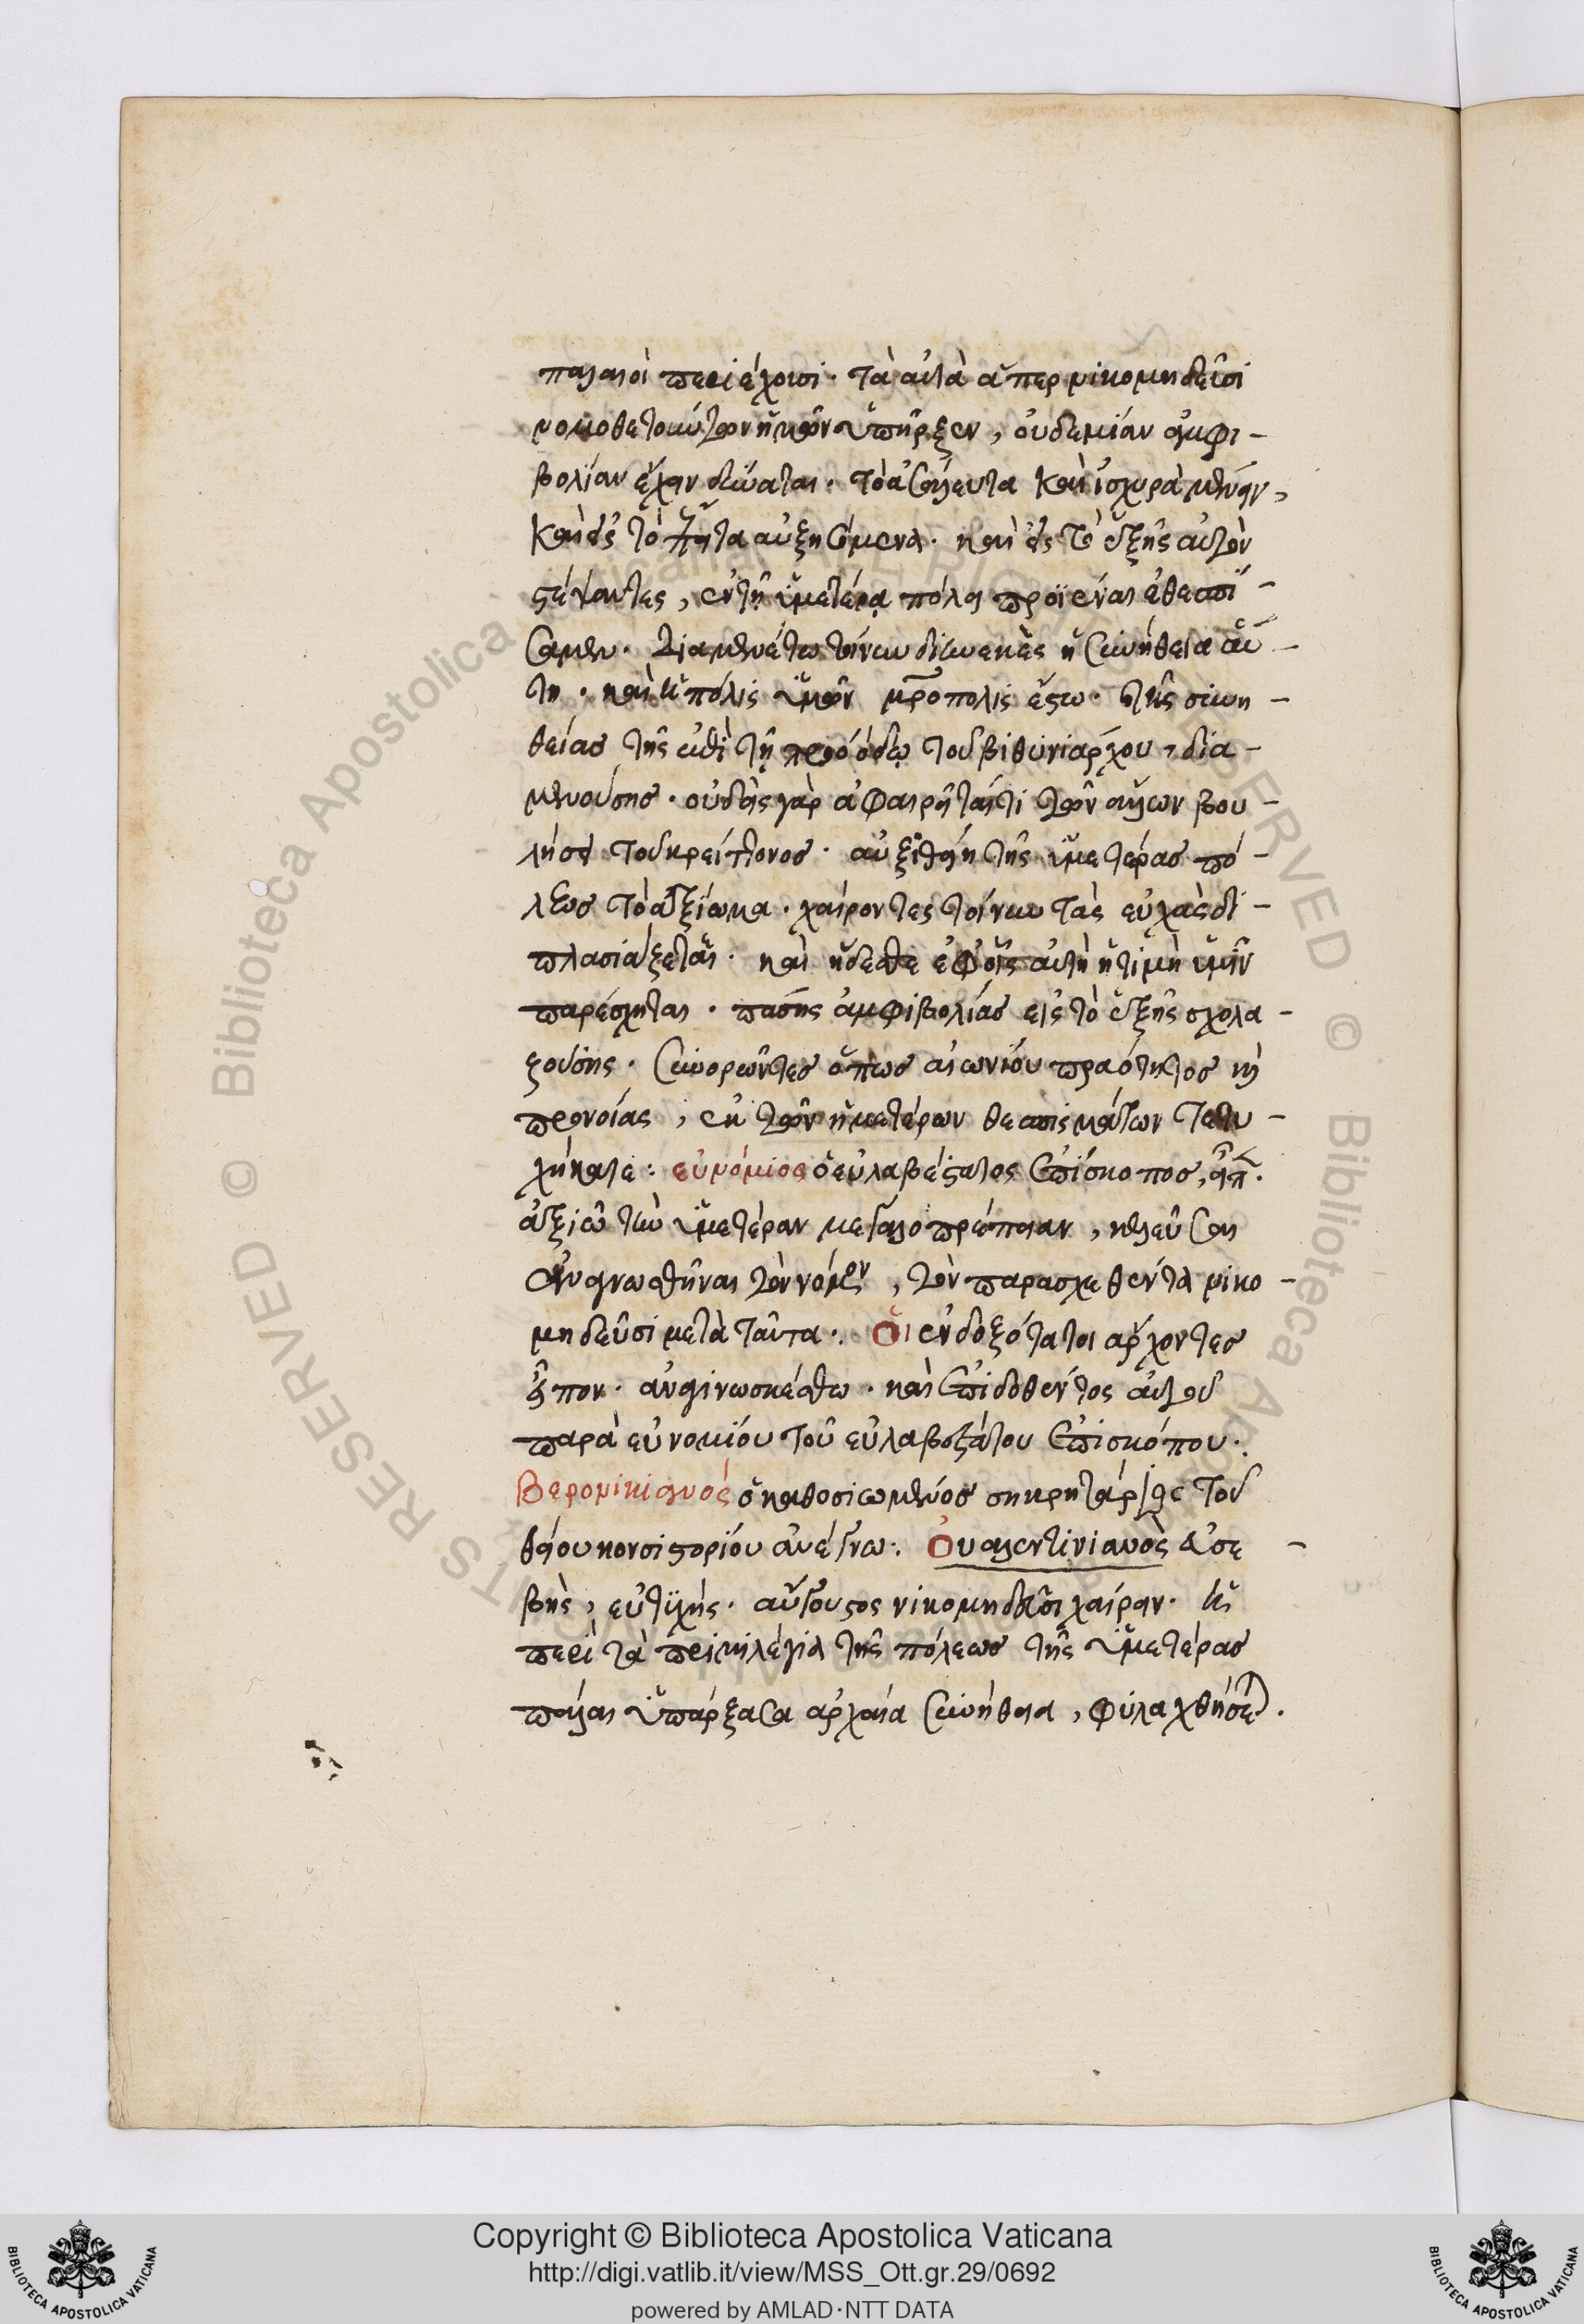 παλαιοὶ περιέχουσι· τὰ αὐτὰ ἅπερ νικομηδεῦσι
νομοθετούντων ἡμῶν ὑπῆρξεν, οὐδεμίαν ἀμφι-
βολίαν ἔχειν δύναται. τὸ ἀσάλευτα καὶ ἰσχυρὰ μένειν,
καὶ εἰς τὸ αὐξησόμενα. καὶ εἰς τὸ ἑξῆς αὐτὸν
στέψαντες, ἐν τῇ ὑμετέρᾳ πόλει προϊέναι ἐθεσπί-
σαμεν. διαμενέτω τοίνυν διηνεκὲς ἡ συνήθεια αὕ-
τη. καὶ ἡ πόλις ὑμῶν μρ̅οπολις ἔστω. τῆς συνη-
θείας τῆς ἐπὶ τῇ προόδῳ τοῦ βιθυνιάρχου, δια-
μενούσης. οὐδεὶς γὰρ ἀφαιρεῖταί τι τῶν ἄλλων βου-
λήσει τοῦ κρείττονος. αὐξηθείη τῆς ὑμετέρας πό-
λεως τὸ ἀξίωμα. χαίροντες τοίνυν τὰς εὐχὰς δι-
πλασιάζεται. καὶ ἥδεσθε ἐφ' οἷς αὐτὴ ἡ τιμὴ ὑμῖν
παρέσχηται. πάσης ἀμφιβολίας εἰς τὸ ἑξῆς σχολα-
ζούσης. συνορῶντες ὅπως αἰωνίου πραότητος καὶ
προνοίας, ἐκ τῶν ἡμετέρων θεσπισμάτων τετυ-
χήκατε: εὐνόμιος ὁ εὐλαβέστατος ἐπίσκοπος, εἶπ.
ἀξιῶ τὴν ὑμετέραν μεγαλοπρέπειαν, κελεῦσαι
ἀναγνωσθῆναι τὸν νόμον, τὸν παρασχεθέντα νικο-
μηδεῦσι μετὰ ταῦτα. Οἱ ἐνδοξότατοι ἄρχοντες
εἶπον. ἀναγινωσκέσθω. καὶ ἐπιδοθέντος αὐτοῦ
παρὰ εὐνομίου τοῦ εὐλαβεστάτου ἐπισκόπου.
Βερονικιανός ὁ καθοσιωμένος σηκρητάριος τοῦ
θείου κονσιστορίου ἀνέγνω. Οὐαλεντινιανὸς εὐσε-
βὴς, εὐτυχής. αὔγουστος νικομηδεῦσι χαίρειν. ἡ
περὶ τὰ πριουιλέγια τῆς πόλεως τῆς ὑμετέρας
πάλαι ὑπάρξασα ἀρχαία συνήθεια, φυλαχθήσεται.